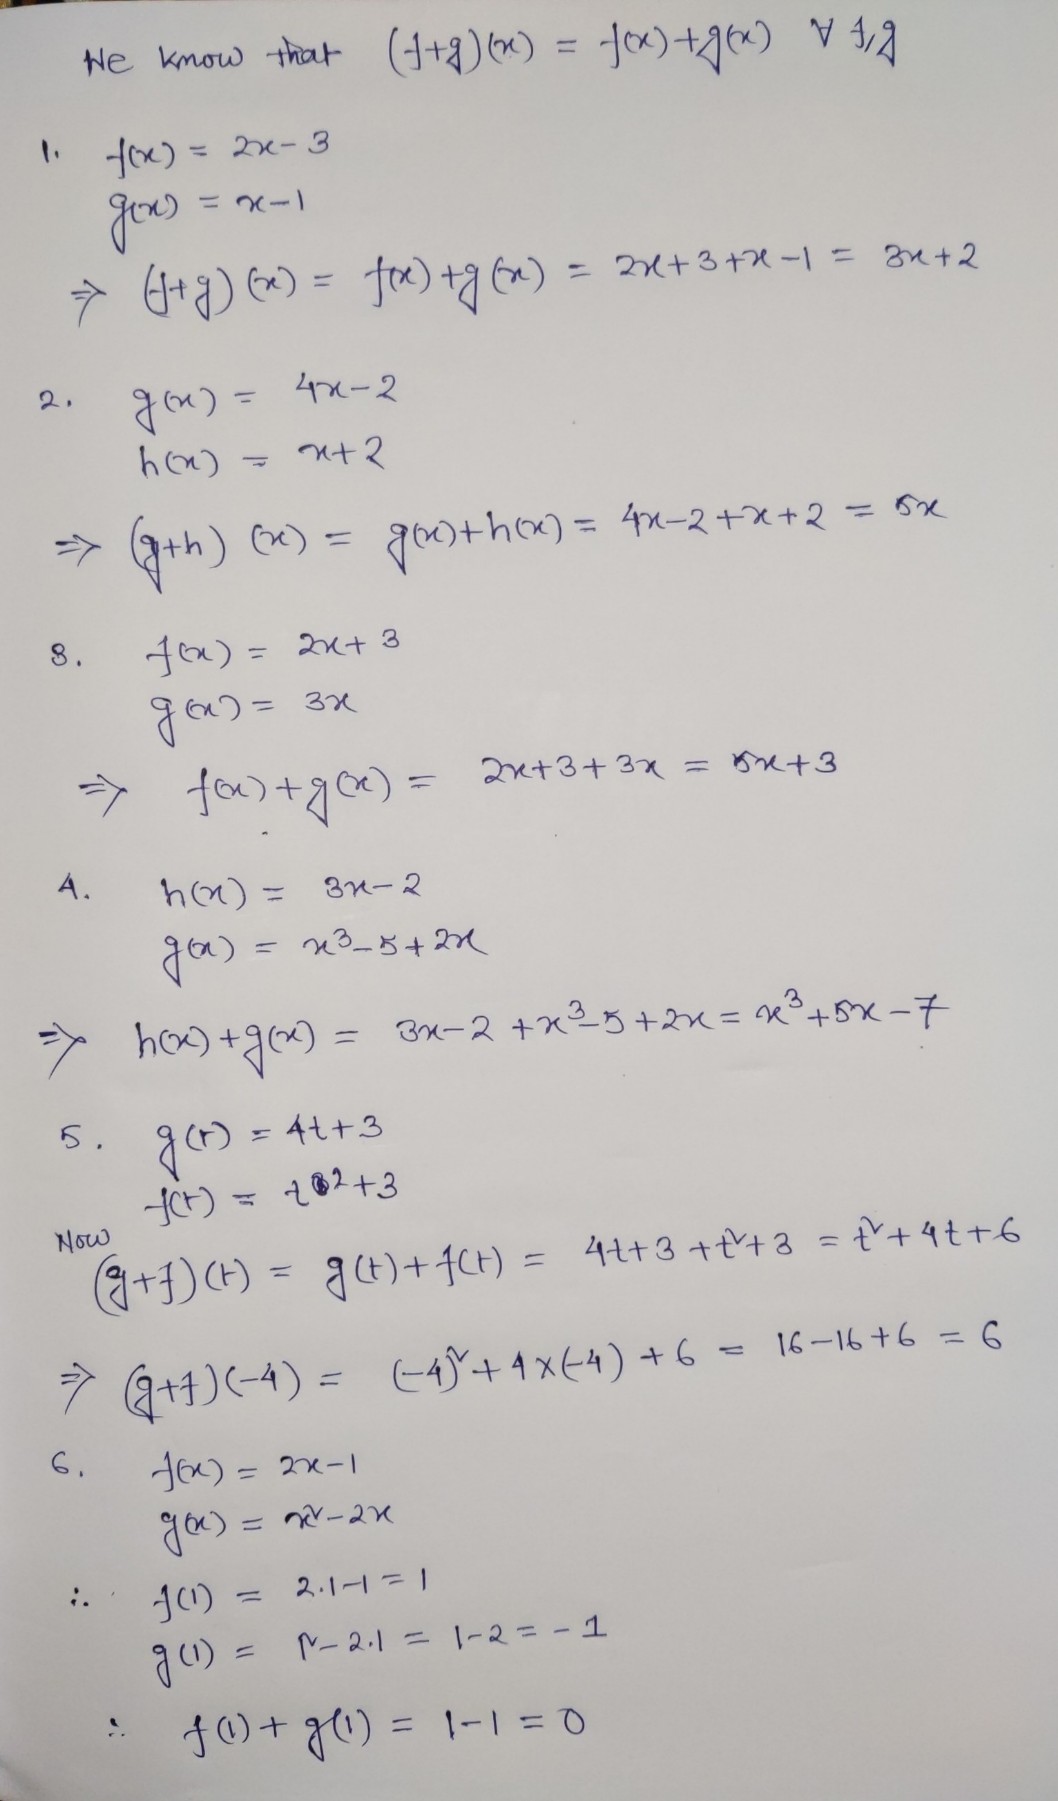 We know that (f+g)(x) = f(x)+g(x) ∀ f,g
1. f(x) = 2x-3
g(x) = x-1
⇒ (f+g)(x) = f(x)+g(x) = 2x+3+x-1 = 3x+2
2. g(x) = 4x-2
h(x) = x+2
⇒ (g+h)(x) = g(x)+h(x) = 4x-2+x+2 = 5x
3. f(x) = 2x+3
g(x) = 3x
⇒ f(x)+g(x) = 2x+3+3x = 5x+3
4. h(x) = 3x-2
g(x) = x³-5+2x
⇒ h(x)+g(x) = 3x-2+x³-5+2x = x³+5x-7
5. g(t) = 4t+3
f(t) = t²+3
Now
(g+f)(t) = g(t)+f(t) = 4t+3+t²+3 = t²+4t+6
⇒ (g+f)(-4) = (-4)²+4×(-4)+6 = 16-16+6 = 6
6. f(x) = 2x-1
g(x) = x²-2x
∴ f(1) = 2.1-1 = 1
g(1) = 1²-2.1 = 1-2 = -1
∴ f(1)+g(1) = 1-1 = 0